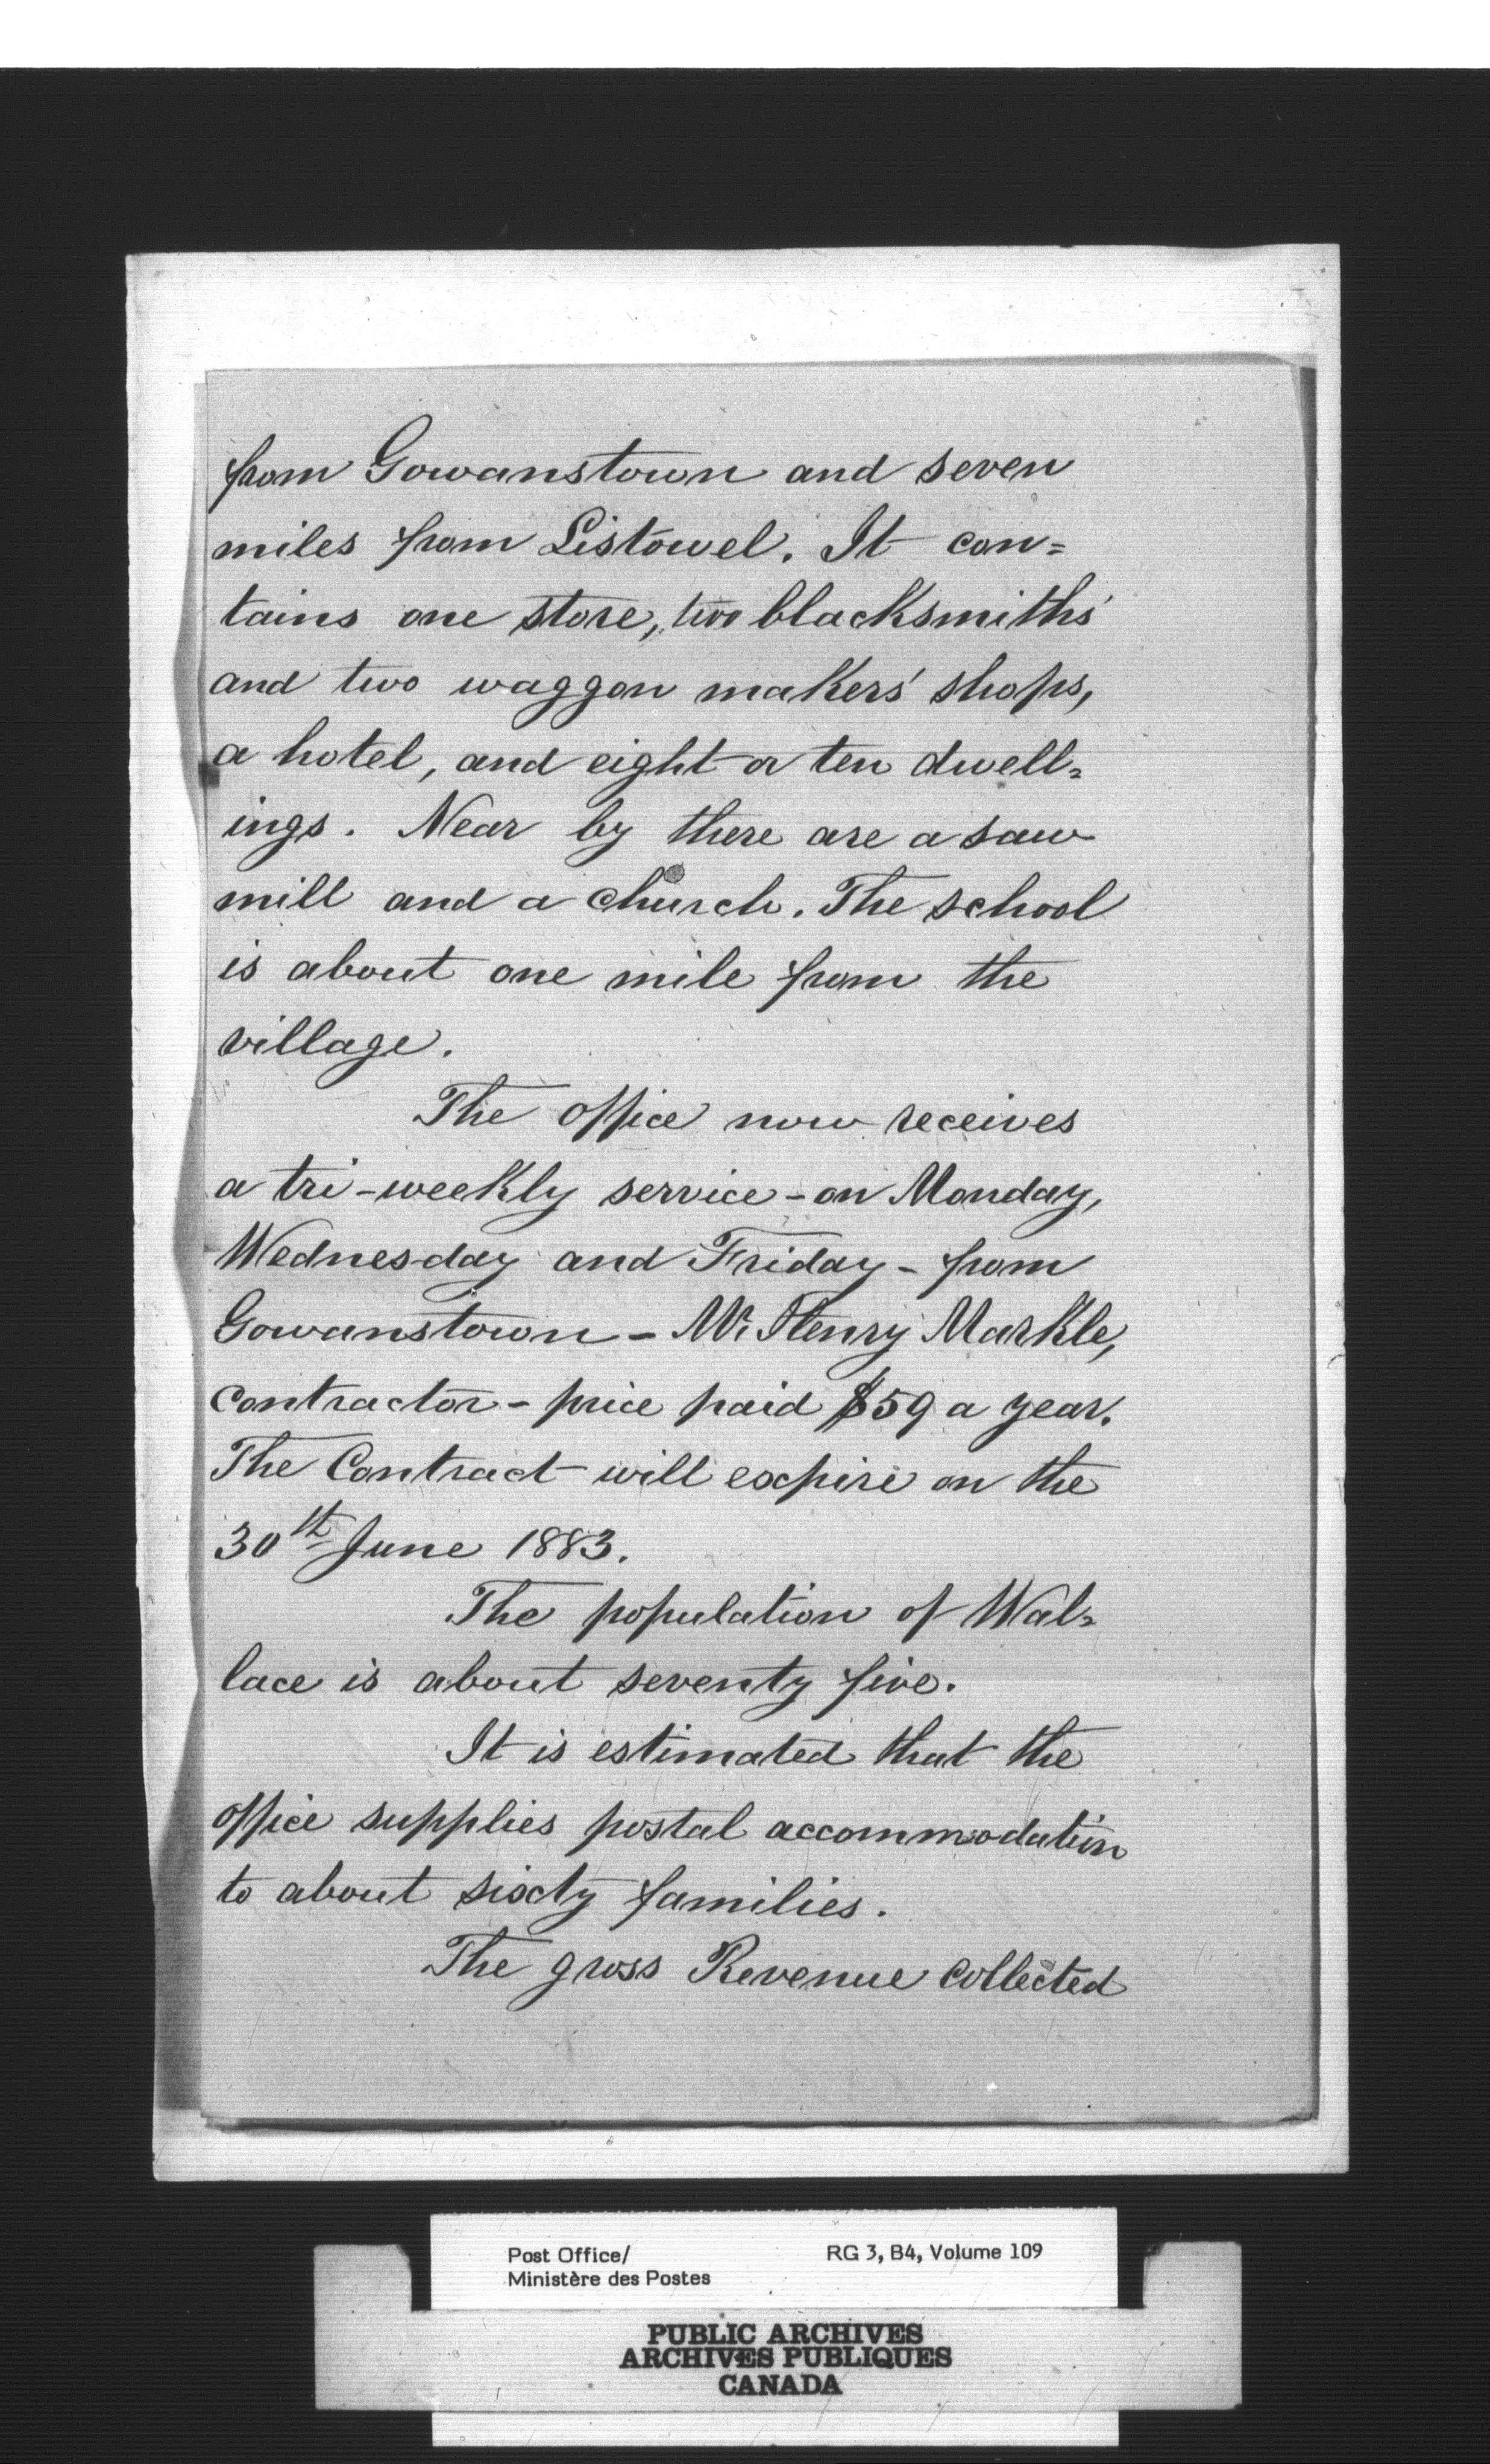 from Gowanstown and seven
miles from Listowel. It con=
tains one store, two blacksmiths'
and two waggon makers' shops,
a hotel, and eight or ten dwell=
ings. Near by there are a saw
mill and a church. The school
is about one mile from the
village.
The office now receives
a tri-weekly service - on Monday,
Wednesday and Friday - from
Gowanstown - Mr Henry Markle,
contractor - price paid $59 a year.
The Contract will expire on the
30th June 1883.
The population of Wal=
lace is about seventy five.
It is estimated that the
office supplies postal accommodation
to about sixty families.
The gross Revenue collected
Post Office/ RG 3, B4, Volume 109
Ministère des Postes
PUBLIC ARCHIVES
ARCHIVES PUBLIQUES
CANADA